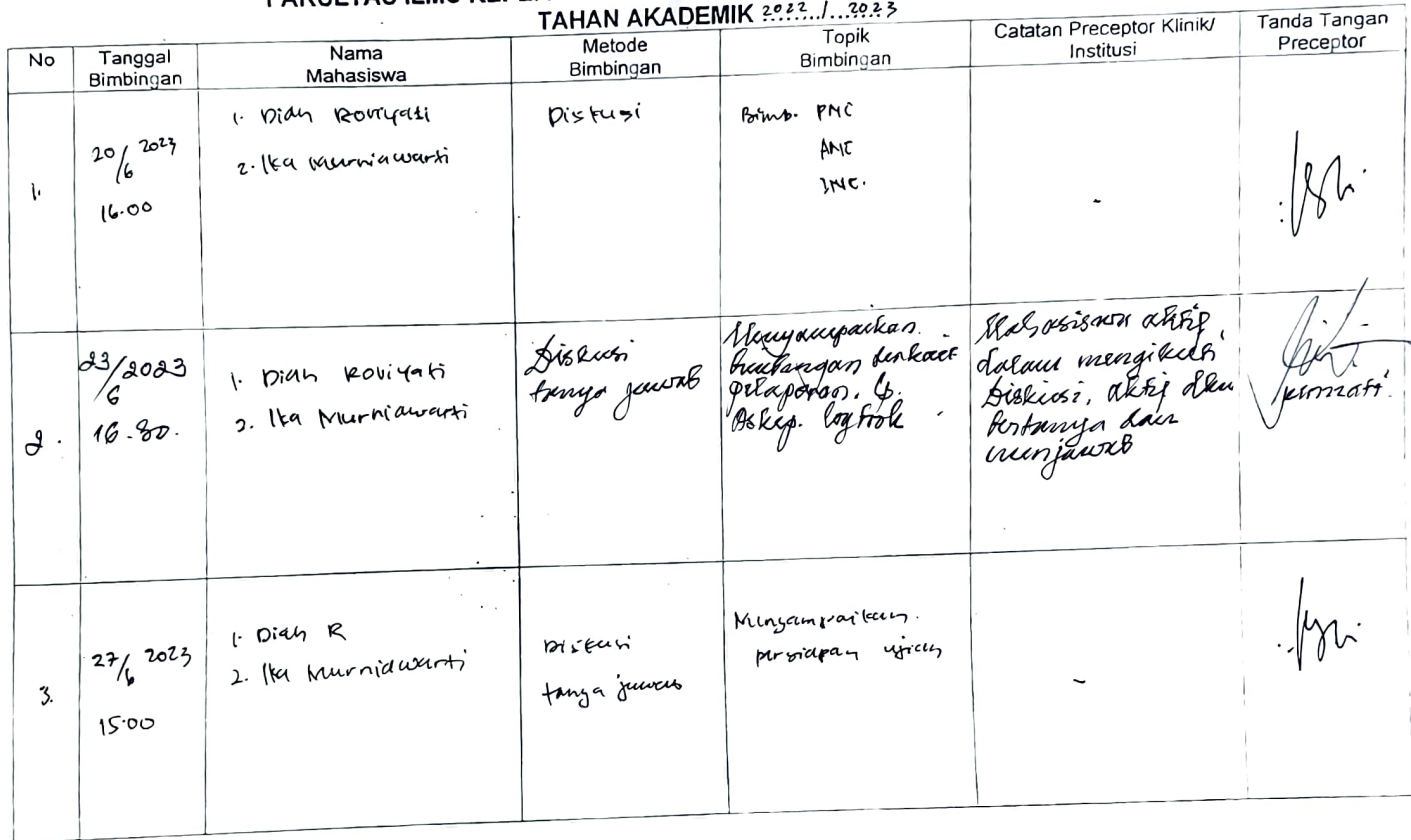 TAHAN AKADEMIK 2022 / 2023
No
Tanggal
Bimbingan
Nama
Mahasiswa
Metode
Bimbingan
Topik
Bimbingan
Catatan Preceptor Klinik/
Institusi
Tanda Tangan
Preceptor
1.
20/6 2023
16.00
1. Diah Roviyati
2. Ika Murniawarti
Diskusi
Bimb. PNC
ANC
INC.
-
2.
23/6 2023
16.30.
1. Diah Roviyati
2. Ika Murniawarti
Diskusi
tanya jawab
Menyampaikan
pelaporan, Lp.
Askep. logbook
Mahasiswa aktif
dalam mengikuti
Diskusi, aktif dlm
bertanya dan
menjawab
3.
27/6 2023
15.00
1. Diah R
2. Ika Murniawarti
Diskusi
tanya jawab
Menyampaikan.
persiapan ujian
-